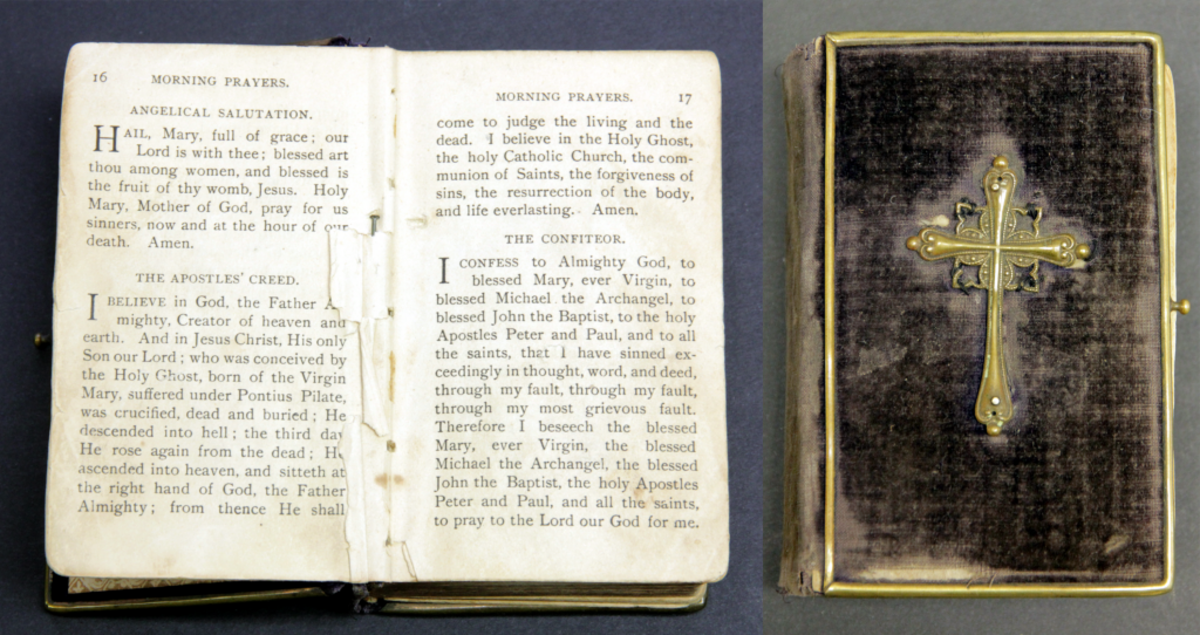 16 MORNING PRAYERS.
ANGELICAL SALUTATION.
HAIL, Mary, full of grace; our
Lord is with thee; blessed art
thou among women, and blessed is
the fruit of thy womb, Jesus. Holy
Mary, Mother of God, pray for us
sinners, now and at the hour of our
death. Amen.
THE APOSTLES' CREED.
I BELIEVE in God, the Father A
mighty, Creator of heaven and
earth. And in Jesus Christ, His only
Son our Lord; who was conceived by
the Holy Ghost, born of the Virgin
Mary, suffered under Pontius Pilate,
was crucified, dead and buried; He
descended into hell; the third day
He rose again from the dead; He
ascended into heaven, and sitteth at
the right hand of God, the Father
Almighty; from thence He shall
MORNING PRAYERS. 17
come to judge the living and the
dead. I believe in the Holy Ghost,
the holy Catholic Church, the com-
munion of Saints, the forgiveness of
sins, the resurrection of the body,
and life everlasting. Amen.
THE CONFITEOR.
I CONFESS to Almighty God, to
blessed Mary, ever Virgin, to
blessed Michael the Archangel, to
blessed John the Baptist, to the holy
Apostles Peter and Paul, and to all
the saints, that I have sinned ex-
ceedingly in thought, word, and deed,
through my fault, through my fault,
through my most grievous fault.
Therefore I beseech the blessed
Mary, ever Virgin, the blessed
Michael the Archangel, the blessed
John the Baptist, the holy Apostles
Peter and Paul, and all the saints,
to pray to the Lord our God for me.